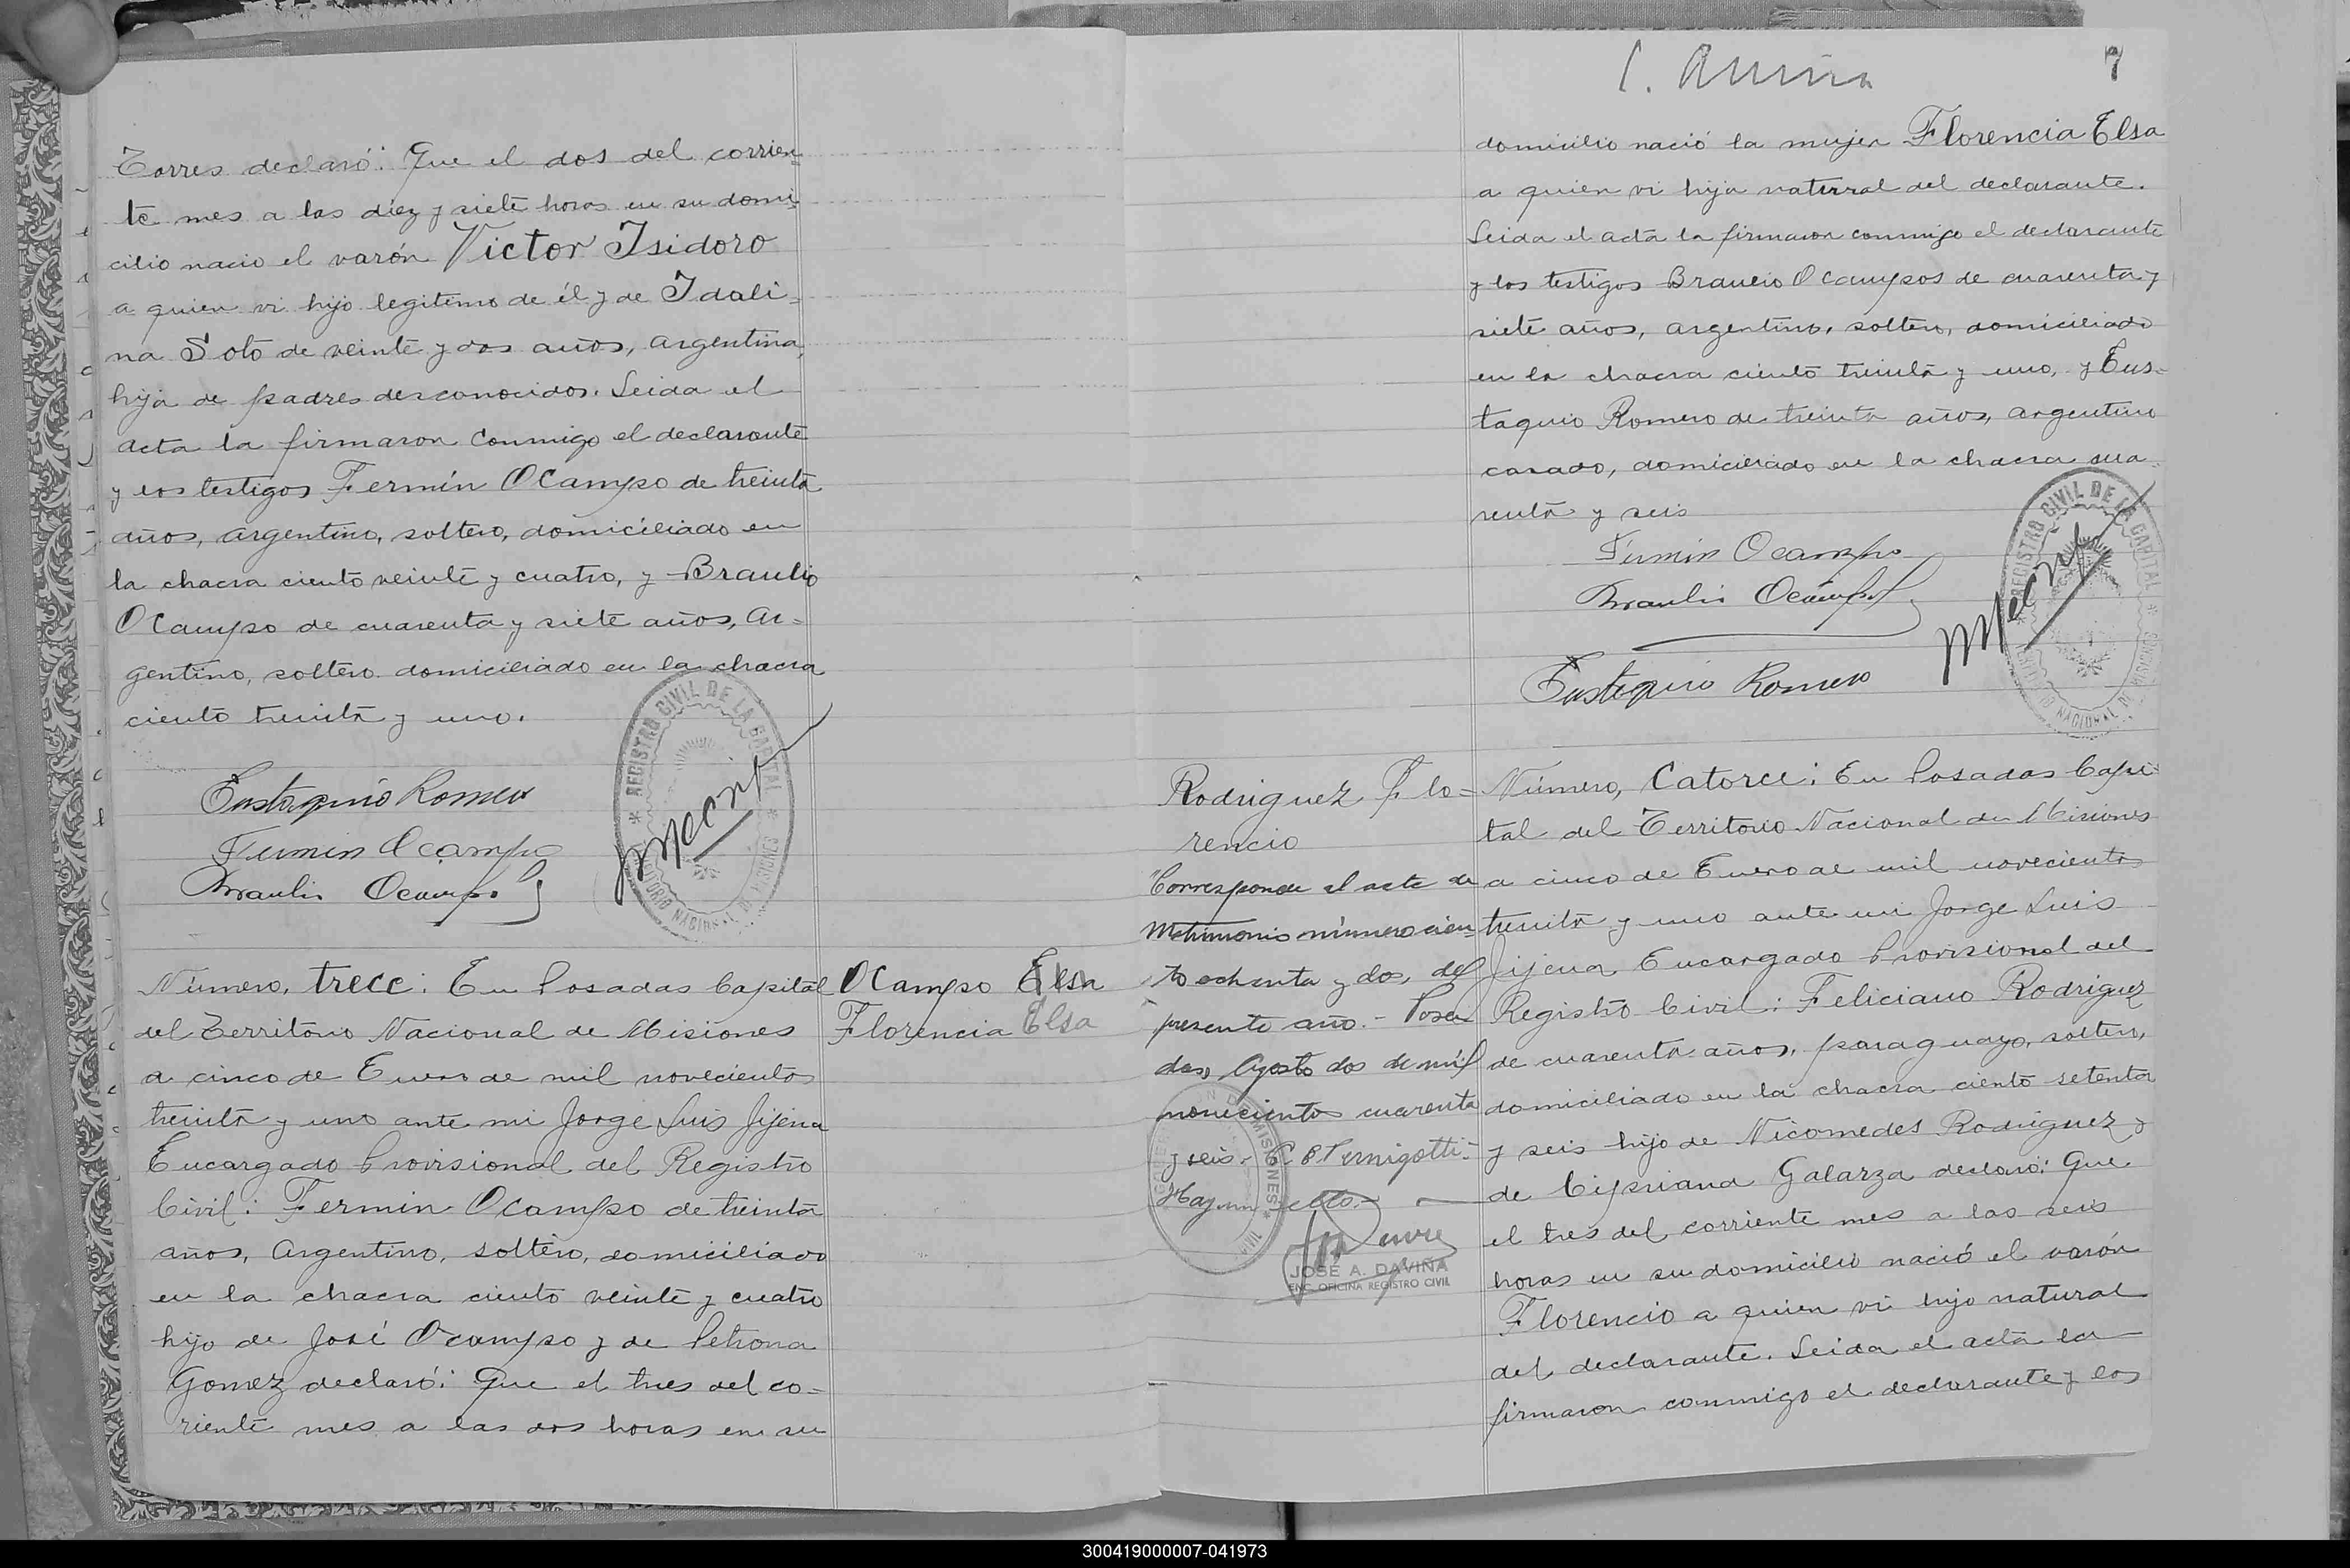 Torres declaró: Que el dos del corrien=
te mes a las diez y siete horas en su domi=
cilio nacio el varón Victor Isidoro
a quien vi hijo legitimo de él y de Idali=
na Soto de veinte y dos años, argentina,
hija de padres desconocidos. Leida el
acta la firmaron conmigo el declarante
y los testigos Fermín Ocampo de treinta
años, argentino, soltero, domiciliado en
la chacra ciento veinte y cuatro, y Braulio
Ocampo de cuarenta y siete años, ar=
gentino, soltero domiciliado en la chacra
ciento treinta y uno.
Eustaquio Romero
Fermin Ocampo
Braulio Ocampo
REGISTRO CIVIL DE LA CAPITAL
TERRITORIO NACIONAL DE MISIONES
Número, trece: En Posadas Capital
del Territorio Nacional de Misiones
a cinco de Enero de mil novecientos
treinta y uno ante mi Jorge Luis Jijena
Encargado Provisional del Registro
Civil: Fermin Ocampo de treinta
años, Argentino, soltero, domiciliado
en la chacra ciento veinte y cuatro
hijo de José Ocampo y de Petrona
Gomez declaró: Que el tres del co=
riente mes a las dos horas en su
Ocampo Elsa
Florencia Elsa
7
domicilio nació la mujer Florencia Elsa
a quien vi hija natural del declarante.
Leida el acta la firmaron conmigo el declarante
y los testigos Braulio Ocampos de cuarenta y
siete años, argentino, soltero, domiciliado
en la chacra ciento treinta y uno, y Eus=
taquio Romero de treinta años, argentino
casado, domiciliado en la chacra cua=
renta y seis
Fermin Ocampo
Braulio Ocampo
Eustaquio Romero
REGISTRO CIVIL DE LA CAPITAL
TERRITORIO NACIONAL DE MISIONES
Rodriguez Flo=
rencio
Corresponde al acta de
Matrimonio número cien=
to ochenta y dos, del
presente año.- Posa=
das, Agosto dos de mil
novecientos cuarenta
y seis.-
Hay un sello.-
MISIONES
JOSÉ A. DAVIÑA
ENC. OFICINA REGISTRO CIVIL
Número, Catorce: En Posadas Capi=
tal del Territorio Nacional de Misiones
a cinco de Enero de mil novecientos
treinta y uno ante mi Jorge Luis
Jijena Encargado Provisional del
Registro Civil: Feliciano Rodriguez
de cuarenta años, paraguayo, soltero,
domiciliado en la chacra ciento setenta
y seis hijo de Nicomedes Rodriguez y
de Cipriana Galarza declaró: Que
el tres del corriente mes a las seis
horas en su domicilio nació el varón
Florencio a quien vi hijo natural
del declarante. Leida el acta la
firmaron conmigo el declarante y los
300419000007-041973